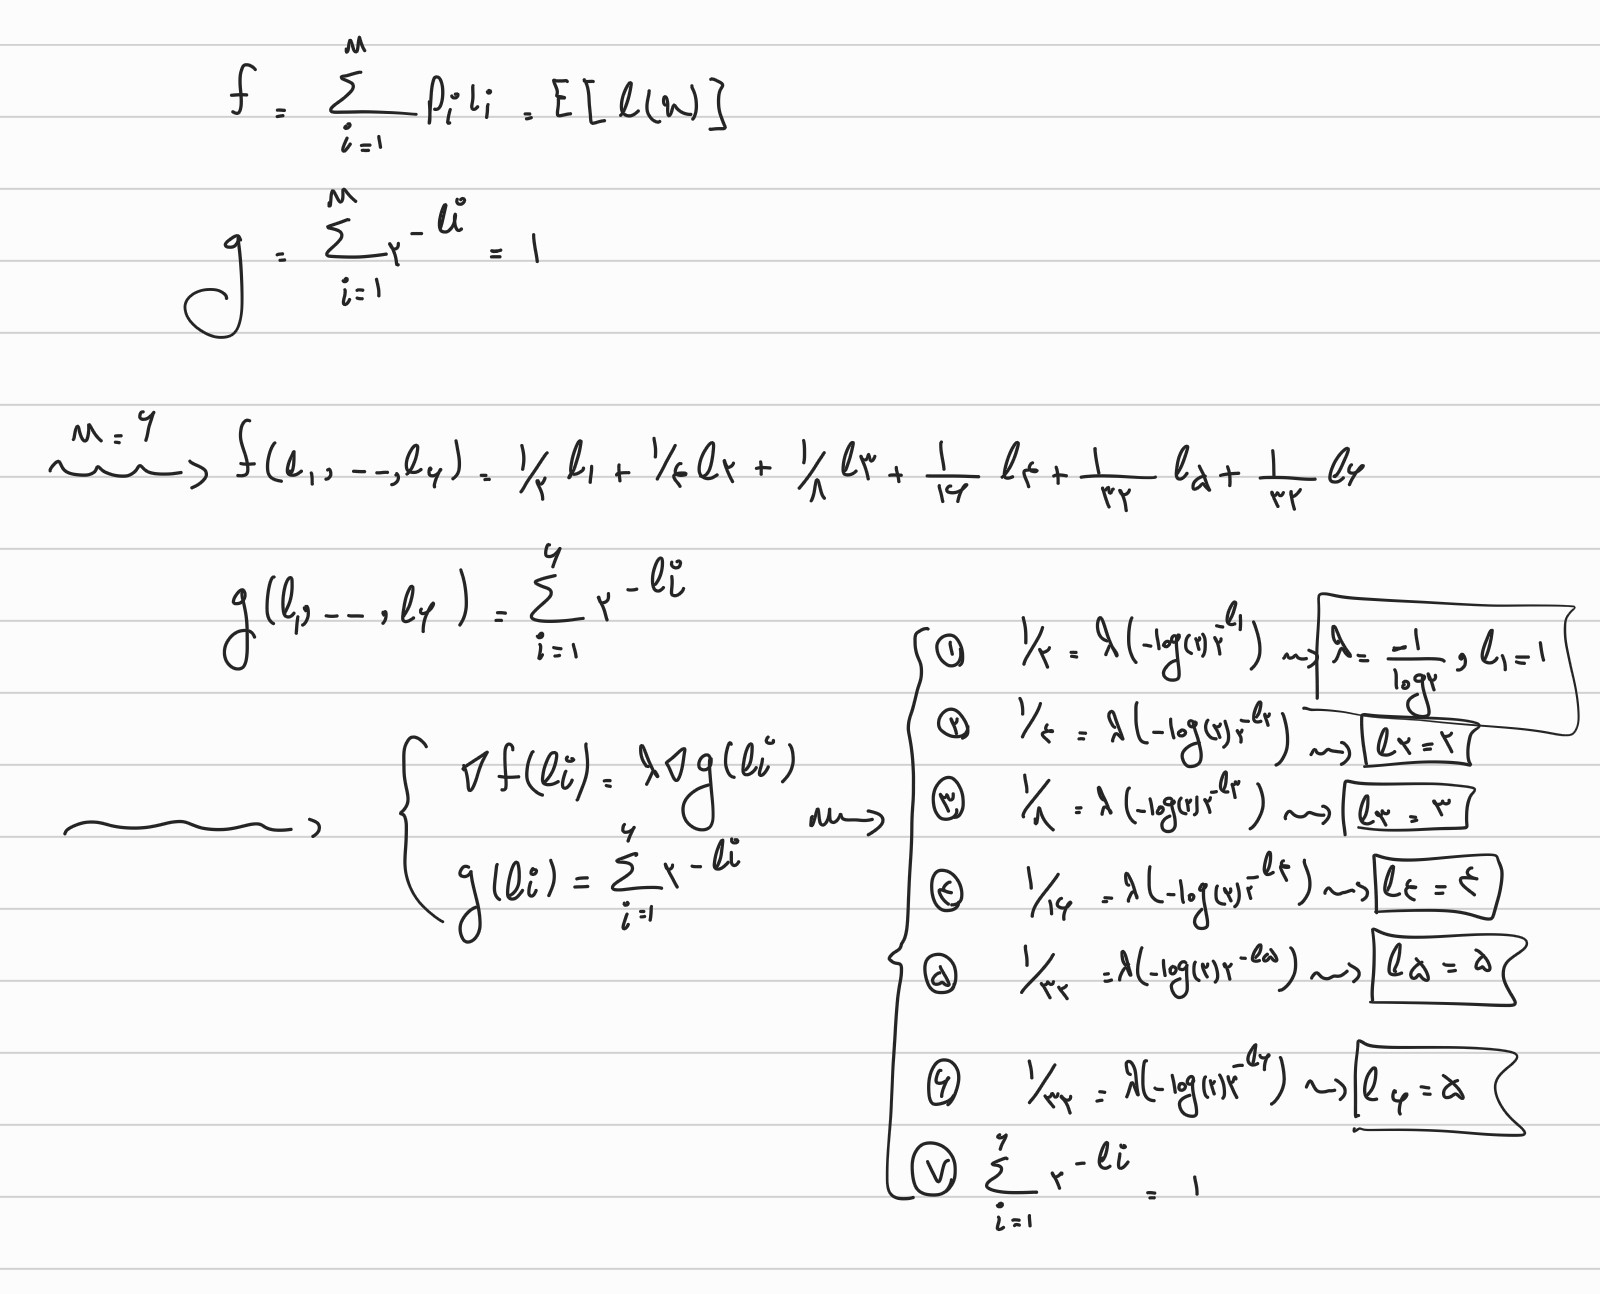 f = ∑_{i=1}^{n} p_i l_i = E[l(x)]
g = ∑_{i=1}^{n} ۲^{-l_i} = ۱
n = ۶ → f(l_۱, --, l_۶) = ۱/۲ l_۱ + ۱/۴ l_۲ + ۱/۸ l_۳ + ۱/۱۶ l_۴ + ۱/۳۲ l_۵ + ۱/۳۲ l_۶
g(l_۱, --, l_۶) = ∑_{i=۱}^{۶} ۲^{-l_i}
→ { ∇f(l_i) = λ∇g(l_i)
g(l_i) = ∑_{i=۱}^{۶} ۲^{-l_i}
→ { ① ۱/۲ = λ(-log(۲)۲^{-l_۱}) → λ = -۱/log۲ , l_۱ = ۱
② ۱/۴ = λ(-log(۲)۲^{-l_۲}) → l_۲ = ۲
③ ۱/۸ = λ(-log(۲)۲^{-l_۳}) → l_۳ = ۳
④ ۱/۱۶ = λ(-log(۲)۲^{-l_۴}) → l_۴ = ۴
⑤ ۱/۳۲ = λ(-log(۲)۲^{-l_۵}) → l_۵ = ۵
⑥ ۱/۳۲ = λ(-log(۲)۲^{-l_۶}) → l_۶ = ۵
⑦ ∑_{i=۱}^{۶} ۲^{-l_i} = ۱